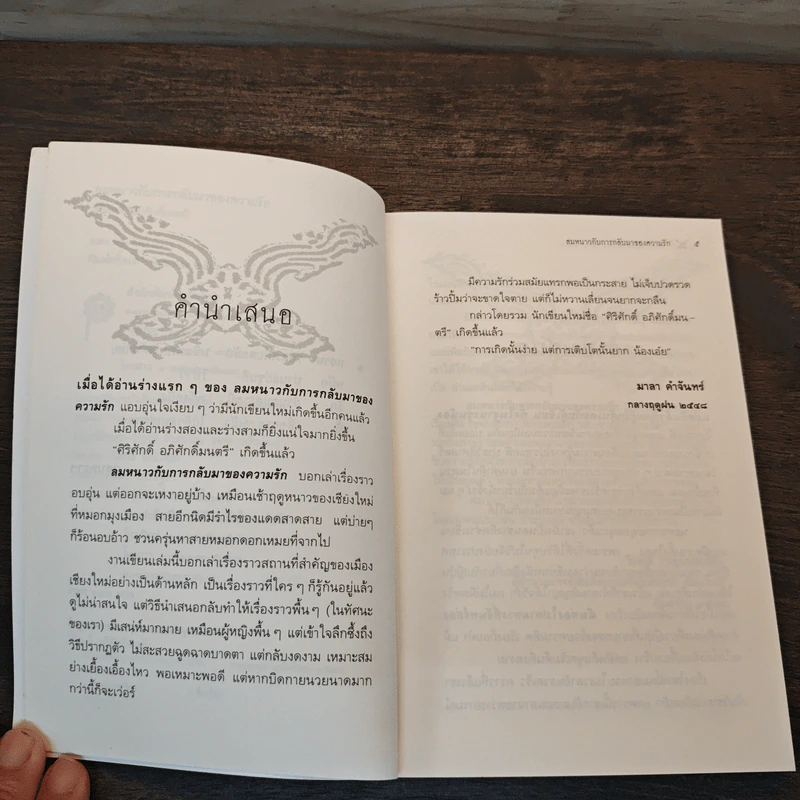 คำนำเสนอ
เมื่อได้อ่านร่างแรก ๆ ของ ลมหนาวกับการกลับมาของ
ความรัก แอบอุ่นใจเงียบ ๆ ว่ามีนักเขียนใหม่เกิดขึ้นอีกคนแล้ว
เมื่อได้อ่านร่างสองและร่างสามก็ยิ่งแน่ใจมากยิ่งขึ้น
“ศิริศักดิ์ อภิศักดิ์มนตรี” เกิดขึ้นแล้ว
ลมหนาวกับการกลับมาของความรัก บอกเล่าเรื่องราว
อบอุ่น แต่ออกจะเหงาอยู่บ้าง เหมือนเช้าฤดูหนาวของเชียงใหม่
ที่หมอกมุงเมือง สายอีกนิดมีรำไรของแดดสาดสาย แต่บ่ายๆ
ก็ร้อนอบอ้าว ชวนครุ่นหาสายหมอกดอกเหมยที่จากไป
งานเขียนเล่มนี้บอกเล่าเรื่องราวสถานที่สำคัญของเมือง
เชียงใหม่อย่างเป็นด้านหลัก เป็นเรื่องราวที่ใคร ๆ ก็รู้กันอยู่แล้ว
ดูไม่น่าสนใจ แต่วิธีนำเสนอกลับทำให้เรื่องราวพื้น ๆ (ในทัศนะ
ของเรา) มีเสน่ห์มากมาย เหมือนผู้หญิงพื้น ๆ แต่เข้าใจลึกซึ้งถึง
วิธีปรากฏตัว ไม่สะสวยฉูดฉาดบาดตา แต่กลับงดงาม เหมาะสม
ย่างเยื้องเอื้องไหว พอเหมาะพอดี แต่หากบิดกายนวยนาดมาก
กว่านี้ก็จะเว่อร์
ลมหนาวกับการกลับมาของความรัก ๕
มีความรักร่วมสมัยแทรกพอเป็นกระสาย ไม่เจ็บปวดรวด
ร้าวปิ้มว่าจะขาดใจตาย แต่ก็ไม่หวานเลี่ยนจนยากจะกลืน
กล่าวโดยรวม นักเขียนใหม่ชื่อ “ศิริศักดิ์ อภิศักดิ์มน-
ตรี” เกิดขึ้นแล้ว
“การเกิดนั้นง่าย แต่การเติบโตนั้นยาก น้องเอ๋ย”
มาลา คำจันทร์
กลางฤดูฝน ๒๕๔๘